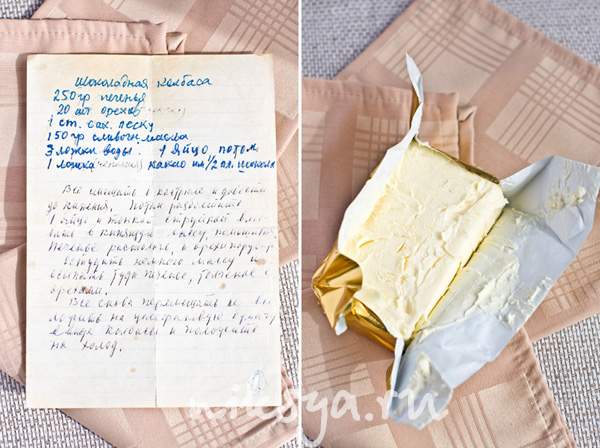 Шоколадная колбаса
250гр печенья
20 шт орехов
1 ст. сах. песку
150гр сливочн. масла
3 ложки воды. 1 яйцо потом
1 ложка (чайная) какао или 1/2 пл. шокола
Все смешать в кастрюле и довести
до кипения. Потом разболтайте
1 яйцо и тонкой струйкой вли-
вать в кипящую массу помешивая.
Печенье растолочь, а орехи
остудить немного массу и
высыпать туда печенье, толченое с
орехами.
Все снова перемешать и вы
ложить на целофановую бумагу
в виде колбасы и положить
на холод.
niksya.ru